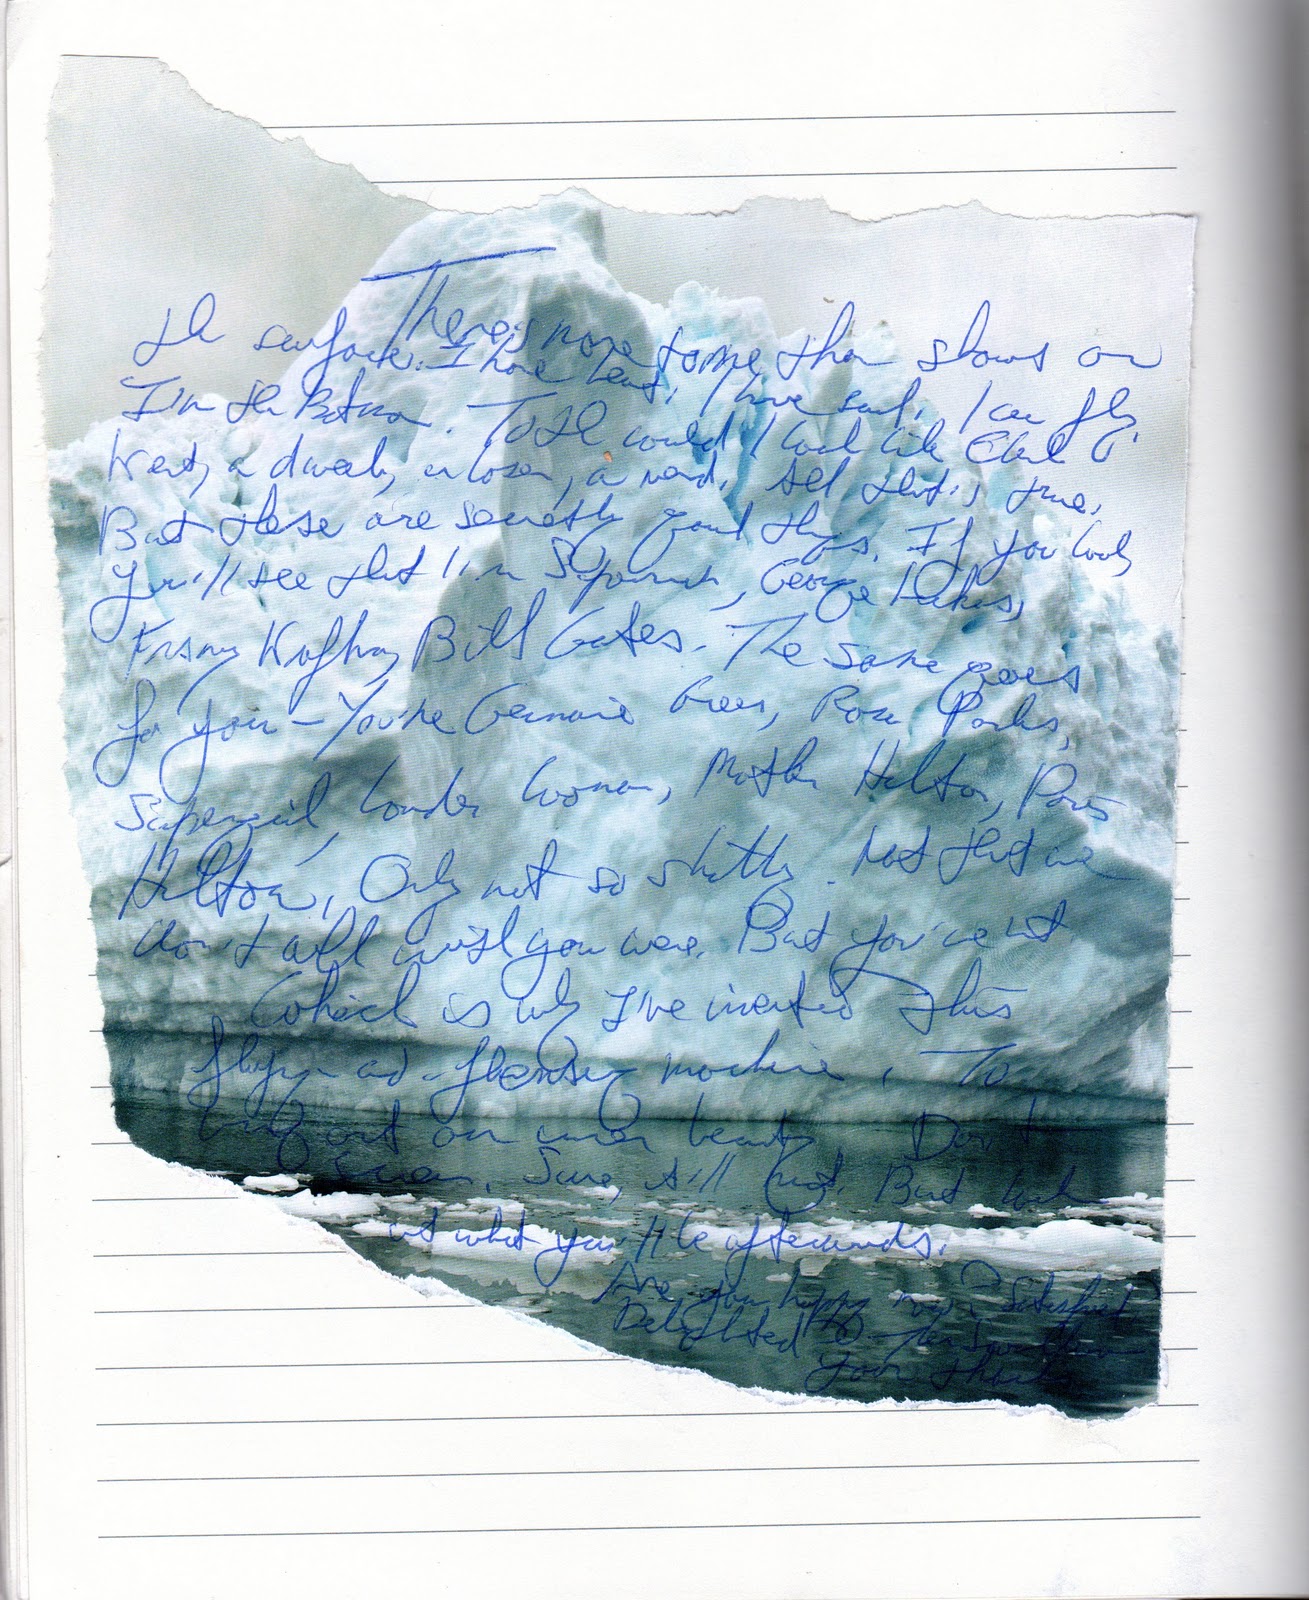 There's more to me than shows on
the surface. I have heart, I have soul, I can fly.
I'm the Batman. To all could I look like Clark
Kent, a dweeb, a loser, a nerd. All that is true.
But these are secretly good things. If you look
you'll see that I'm Superman, George
Franz Kafka, Bill Gates. The same goes
for you — You're Germaine Greer, Rosa Parks,
Supergirl, Wonder Woman, Mother Hilton, Paris
Hilton, Only not so slutty. Not that we
don't all wish you were. But you're not
Which is why I've invented this
flying and flensing machine. To
bring out our inner beauty. Don't
Sure, it'll hurt. But look
at what you'll be afterwards.
Are you happy now? Satisfied?
Delighted?
your thanks